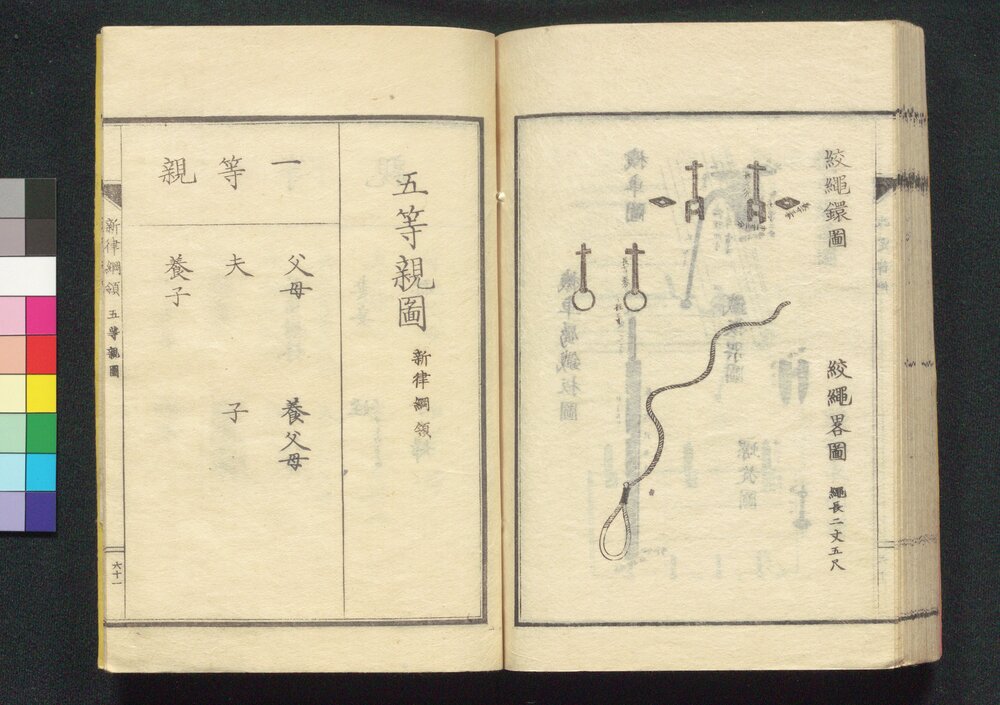 絞繩鐶圖
絞繩畧圖 繩長二丈五尺
五等親圖 新律綱領
一等親
父母 養父母
夫 子
養子
新律綱領 五等親圖
六十一